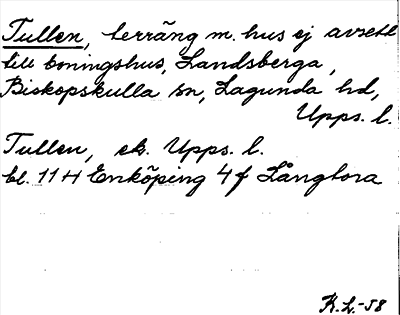 Tullen, terräng m. hus ej avsett
till boningshus, Landsberga,
Biskopskulla sn, Lagunda hd,
Upps. l.
Tullen, ek. Upps. l.
bl. 11 H Enköping 4 f Långtora
K.L.-58